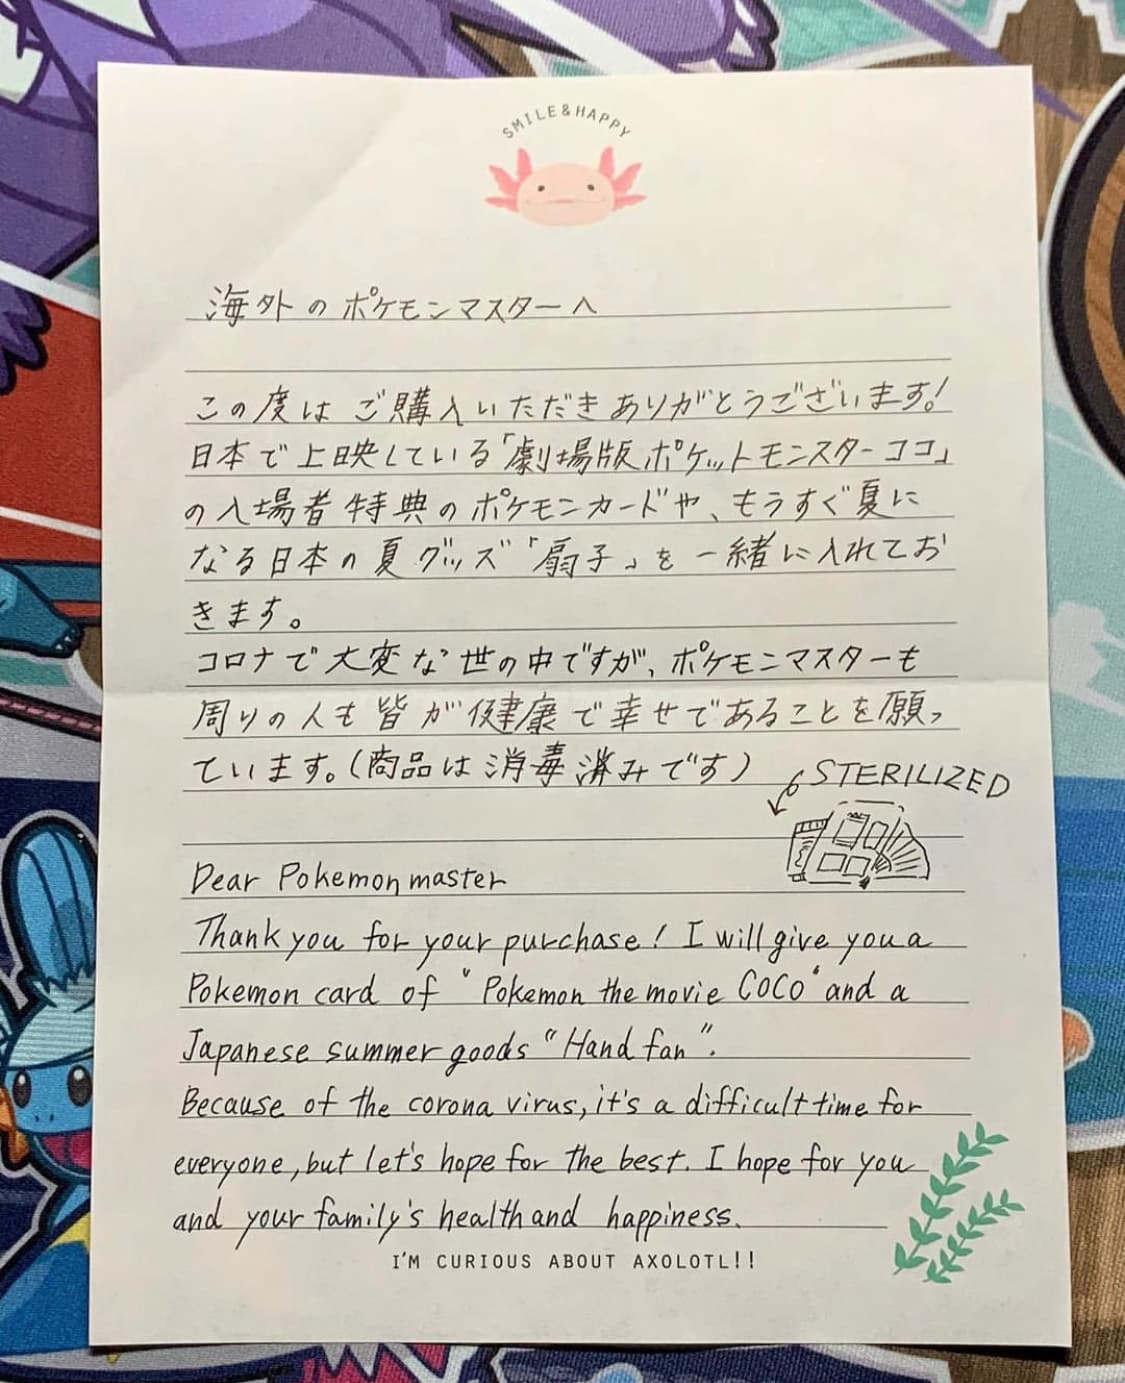 SMILE&HAPPY
海外のポケモンマスターへ
この度はご購入いただきありがとうございます!
日本で上映している「劇場版ポケットモンスターココ」
の入場者特典のポケモンカードや、もうすぐ夏に
なる日本の夏グッズ「扇子」を一緒に入れてお
きます。
コロナで大変な世の中ですが、ポケモンマスターも
周りの人も皆が健康で幸せであることを願っ
ています。(商品は消毒済みです)
STERILIZED
Dear Pokemon master
Thank you for your purchase! I will give you a
Pokemon card of "Pokemon the movie COCO" and a
Japanese summer goods "Hand fan".
Because of the corona virus, it's a difficult time for
everyone, but let's hope for the best. I hope for you
and your family's health and happiness.
I'M CURIOUS ABOUT AXOLOTL!!